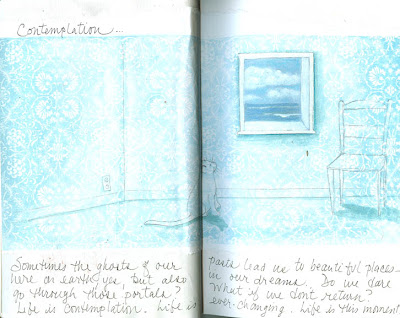 Contemplation...
Sometimes the ghosts of our pasts lead us to beautiful places—
here on earth, yes, but also in our dreams. Do we dare
go through those portals? What if we don't return?
Life is contemplation. Life is ever-changing. Life is this moment